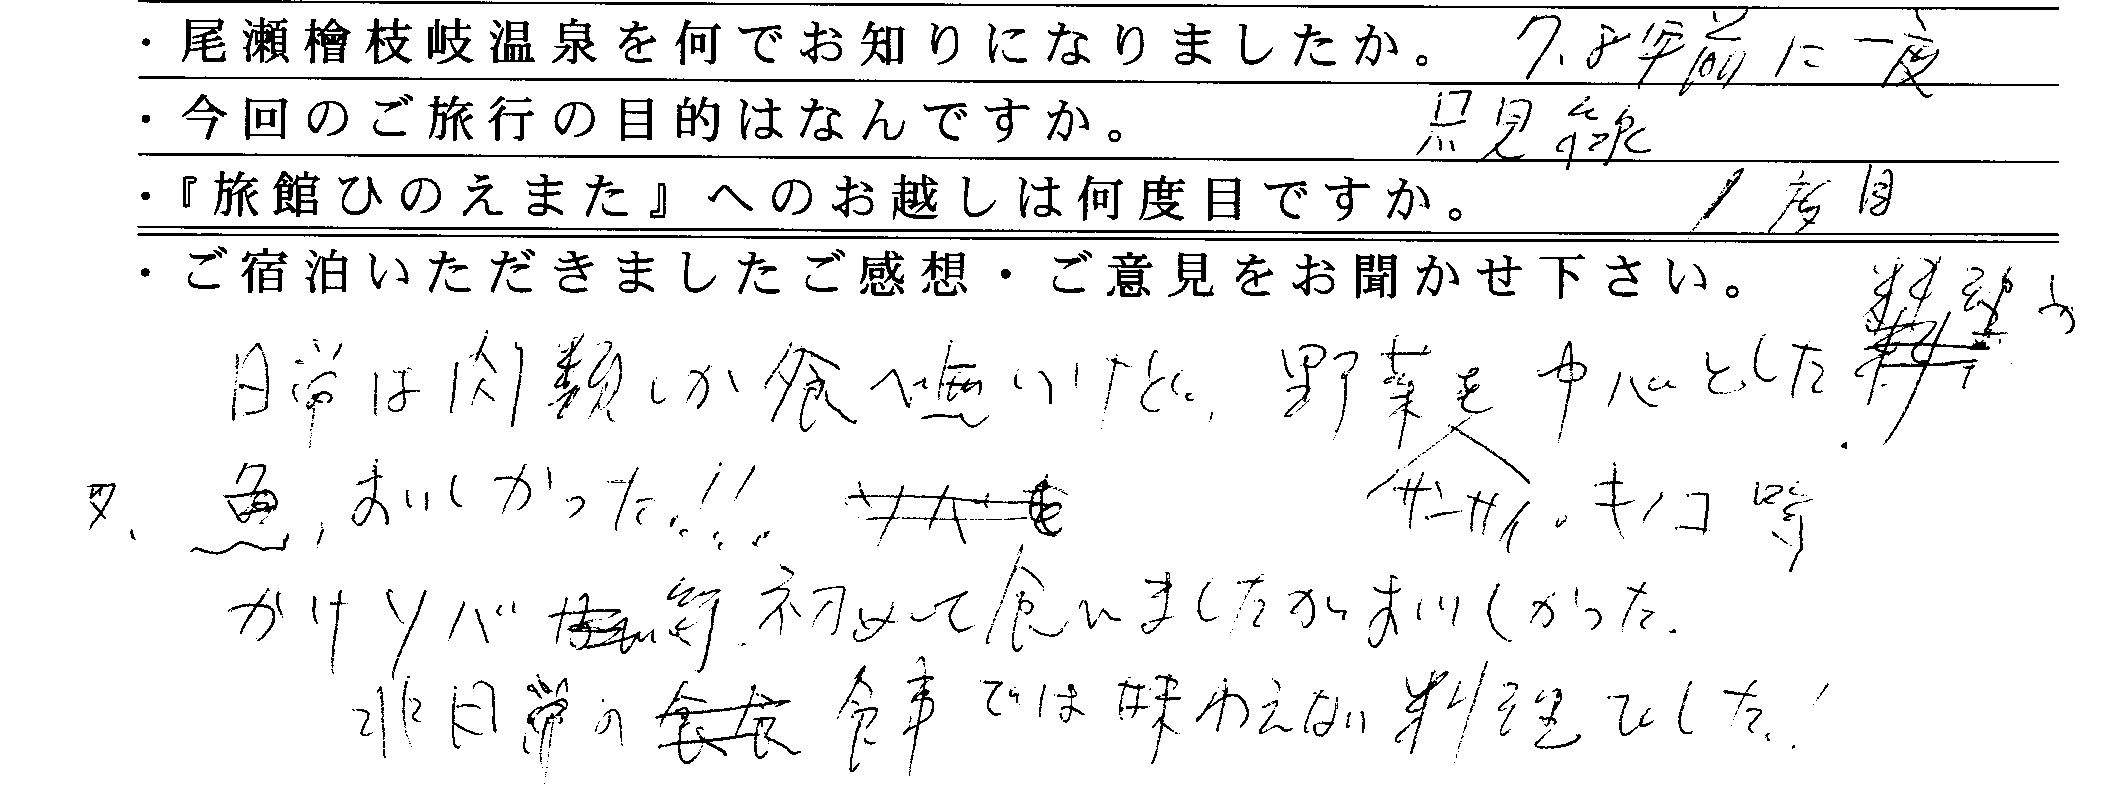 ・尾瀬檜枝岐温泉を何でお知りになりましたか。 7、8年前に一度
・今回のご旅行の目的はなんですか。 只見線
・『旅館ひのえまた』へのお越しは何度目ですか。 1度目
・ご宿泊いただきましたご感想・ご意見をお聞かせ下さい。
日常は肉類しか食べ無いけど、野菜を中心とした料理の
魚、おいしかった!! サンサイ。キノコ等
かけソバ等初めて食いましたがおいしかった。
非日常の食事では味わえない料理でした!